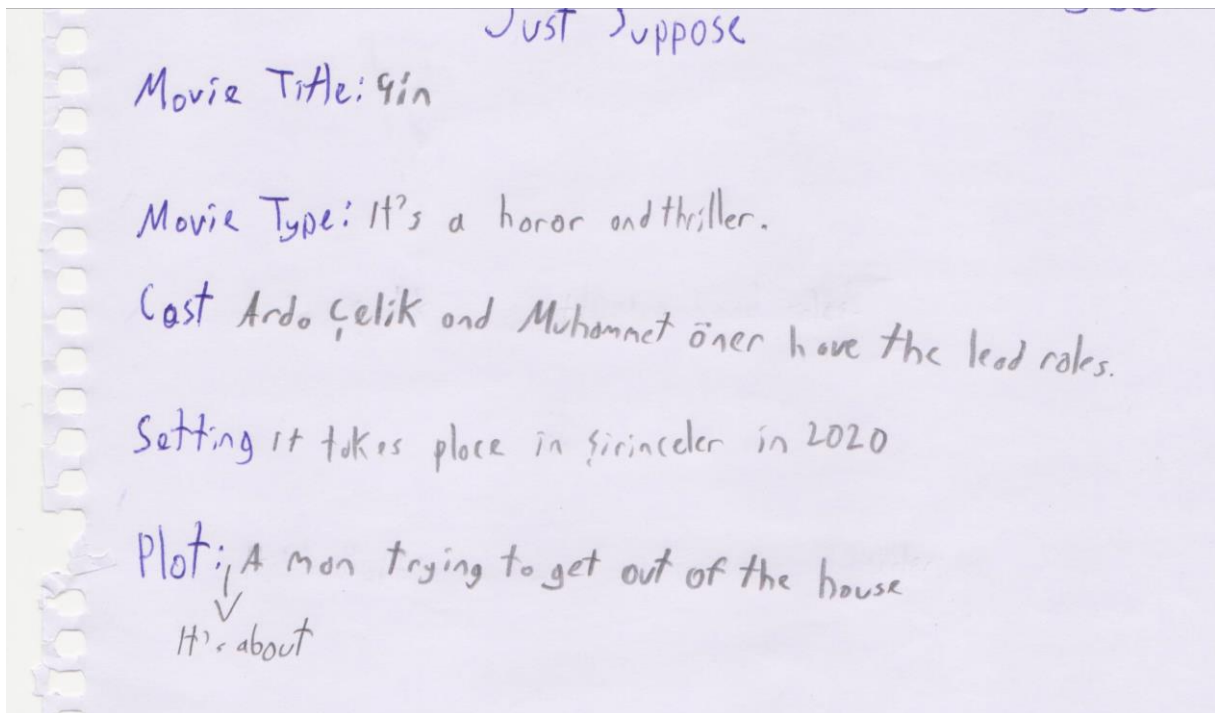 Just Suppose
Movie Title: Cin
Movie Type: It's a horor and thriller.
Cast Arda Çelik and Muhammet öner have the lead roles.
Setting it takes place in şirinceler in 2020
Plot: A man trying to get out of the house
It's about